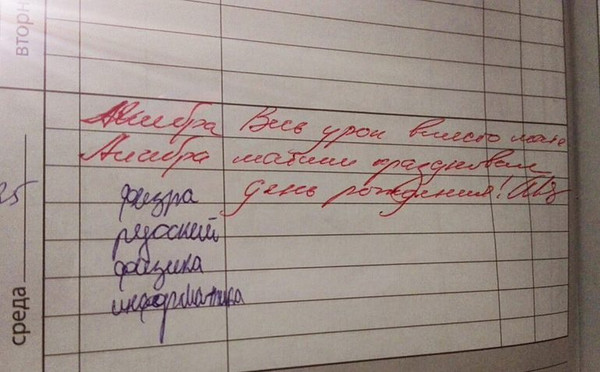 вторн
Алгебра Весь урок вместо мате
Алгебра матики праздновали
25 физра день рождения!
русский
физика
информатика
среда